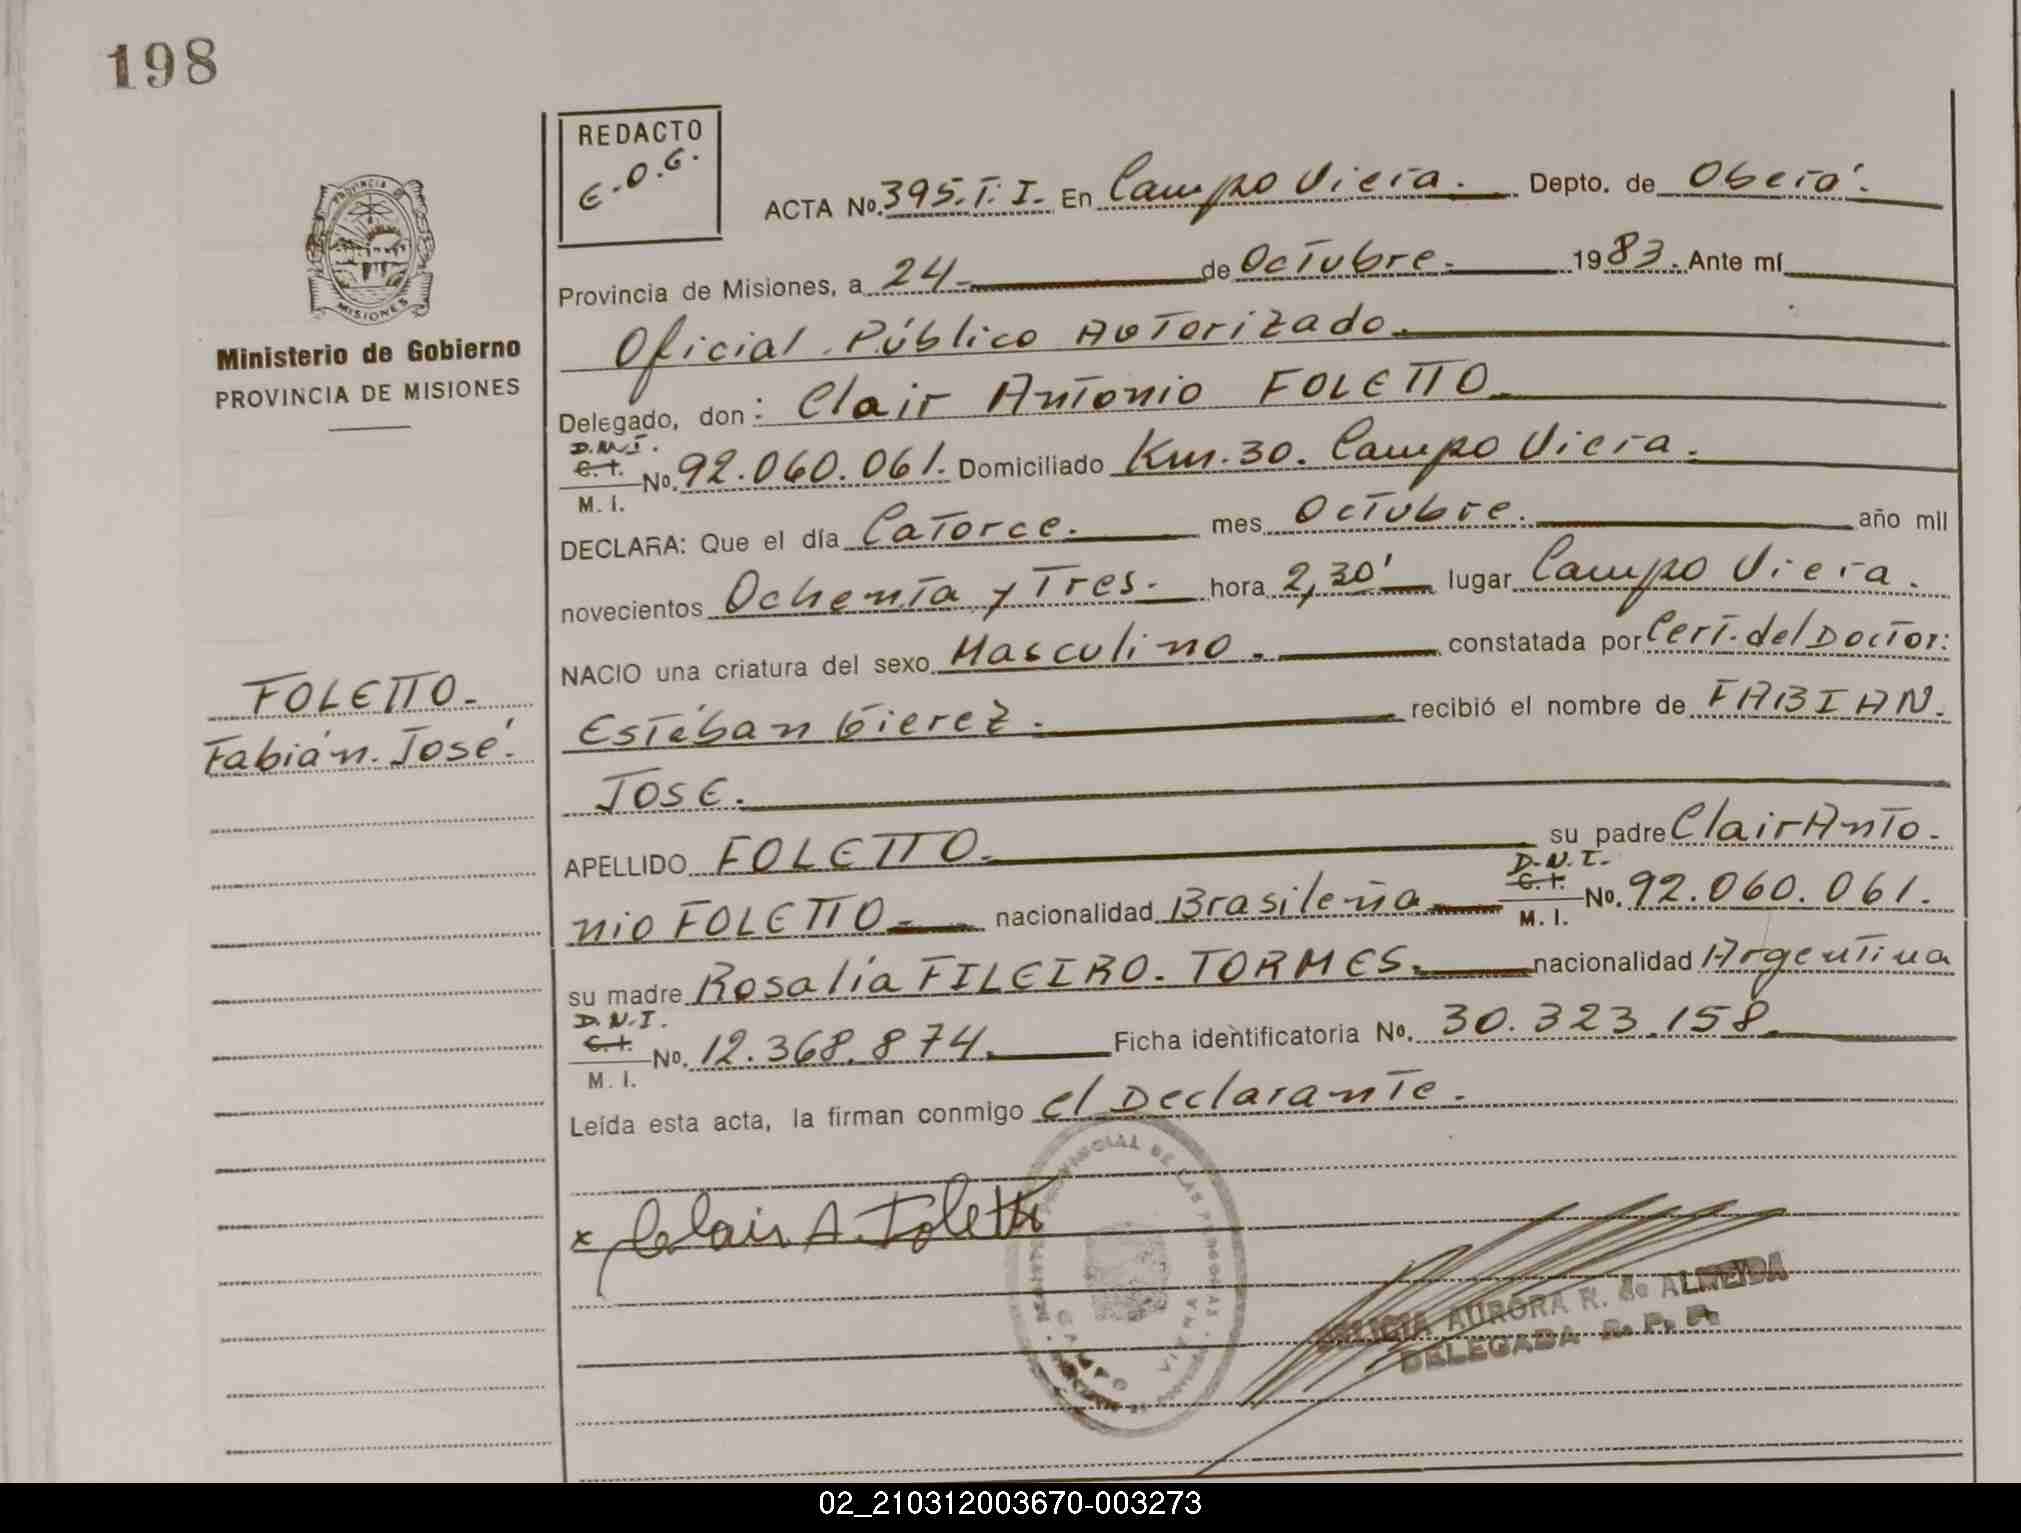 198
REDACTO
E.O.G.
ACTA No. 395.T.I. En Campo Viera. Depto. de Oberá.
PROVINCIA DE
MISIONES
Provincia de Misiones, a 24 de Octubre. 1983. Ante mí
Ministerio de Gobierno
PROVINCIA DE MISIONES
Oficial Público Autorizado.
Delegado, don: Clair Antonio FOLETTO
D.N.I.
C.I.
M. I.
No. 92.060.061. Domiciliado Km. 30. Campo Viera.
DECLARA: Que el día Catorce. mes Octubre. año mil
novecientos Ochenta y Tres. hora 2,30' lugar Campo Viera.
NACIO una criatura del sexo Masculino. constatada por Cert. del Doctor:
FOLETTO.
Fabián. José.
Estéban Gierez. recibió el nombre de FABIAN.
JOSE.
APELLIDO FOLETTO. su padre Clair Anto-
nio FOLETTO nacionalidad Brasileña D.N.I. C.I. M. I. No. 92.060.061.
su madre Rosalía FILEIRO. TORMES. nacionalidad Argentina
D.N.I.
C.I.
M. I.
No. 12.368.874. Ficha identificatoria No. 30.323.158.
Leída esta acta, la firman conmigo el Declarante.
x Clair A. Foletto
PROVINCIAL DE LAS PERSONAS
CAMPO VIERA
AURORA R. de ALMEIDA
DELEGADA R. P. P.
02_210312003670-003273